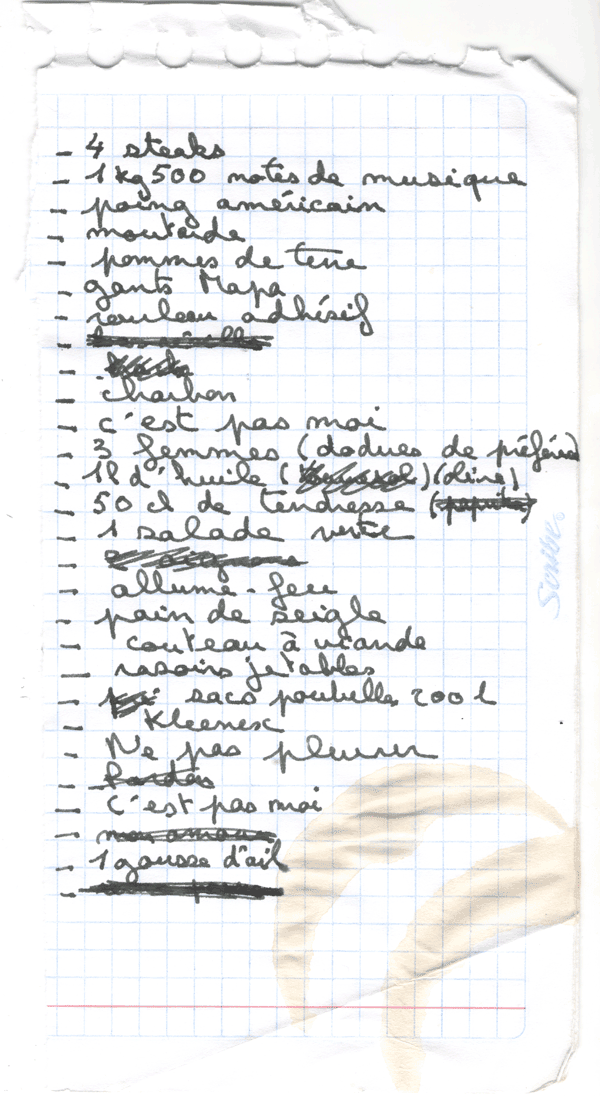 - 4 steaks
- 1 kg 500 notes de musique
- poing américain
- moutarde
- pommes de terre
- gants Mapa
- rouleau adhésif
- charbon
- c'est pas moi
- 3 femmes (dodues de préférence)
- 1 l d'huile (olive)
- 50 cl de tendresse (paprika)
- 1 salade verte
- allume-feu
- pain de seigle
- couteau à viande
- rasoirs jetables
- sacs poubelle 200 l
- Kleenex
- Ne pas pleurer
- c'est pas moi
- mon amour
- 1 gousse d'ail
Scribe.